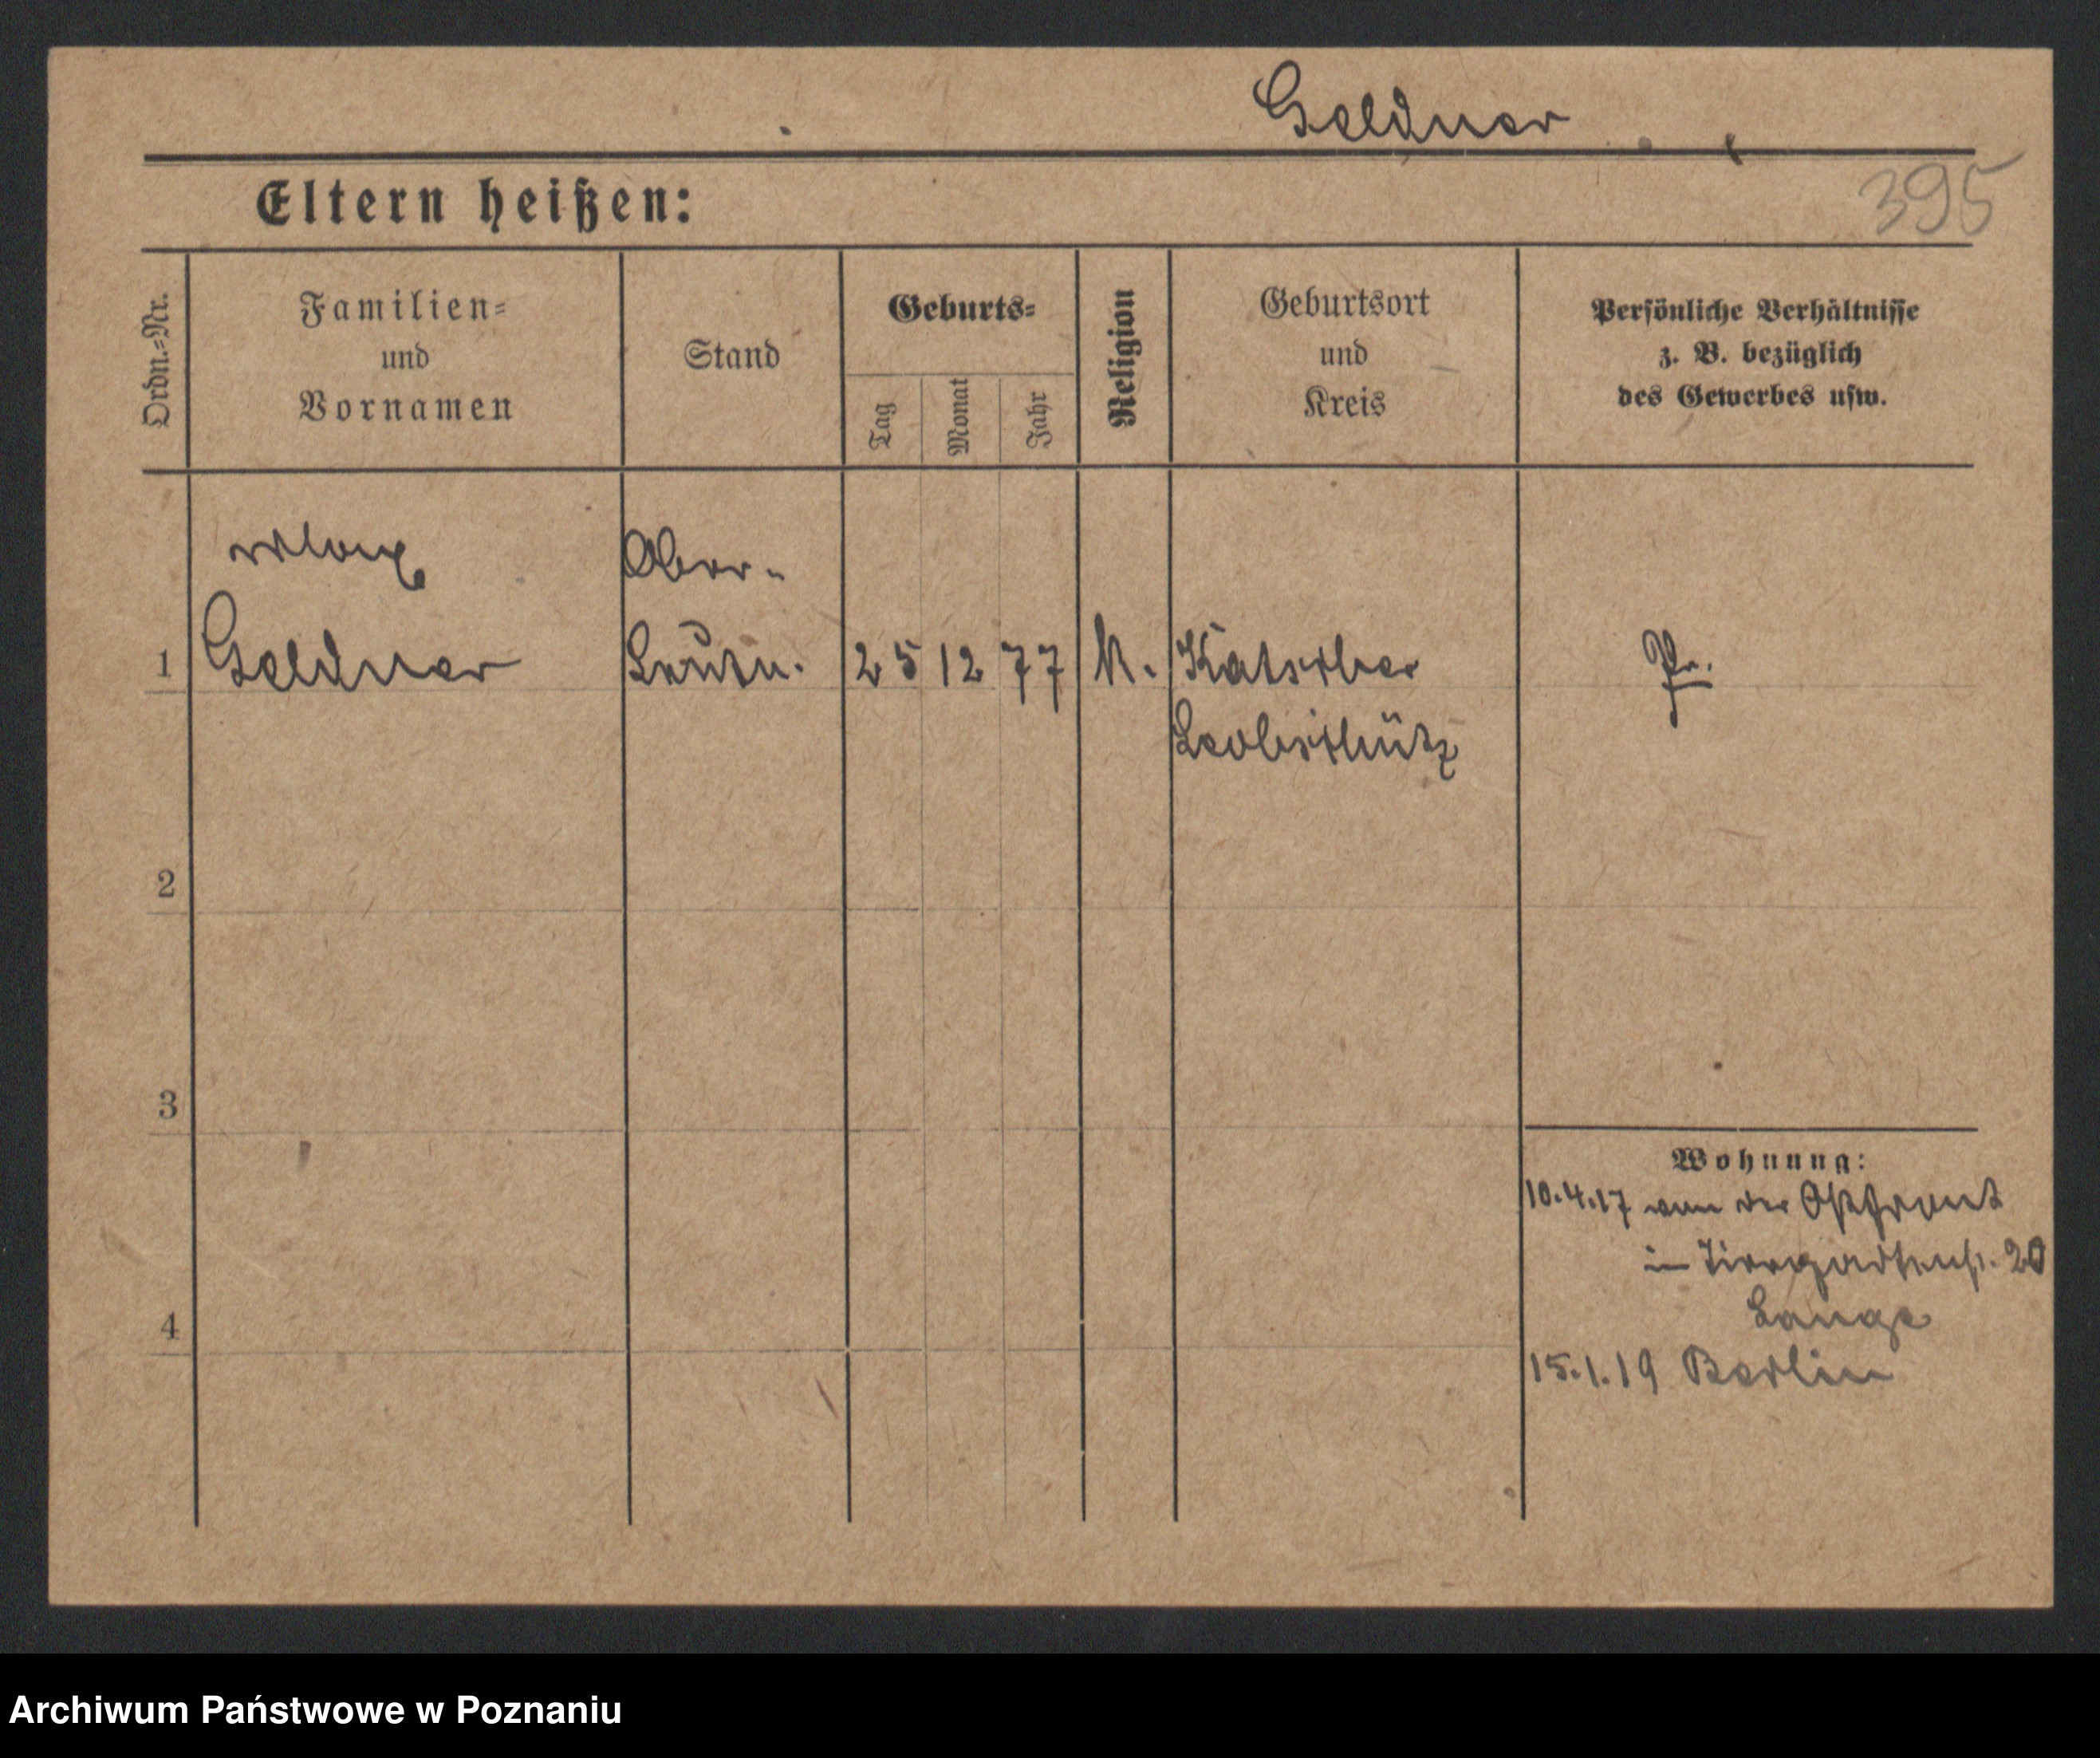 Geldner
Eltern heißen:
395
Ordn.-Nr.
Familien-
und
Vornamen
Stand
Geburts-
Tag
Monat
Jahr
Religion
Geburtsort
und
Kreis
Persönliche Verhältnisse
z. B. bezüglich
des Gewerbes usw.
Ober-
1 Geldner Leutn. 25 12 77 K. Katscher Pr.
Leobschütz
2
3
Wohnung:
10.4.17 von der Ostfront
in Tiergartenstr. 20
Lange
4
15.1.19 Berlin
Archiwum Państwowe w Poznaniu